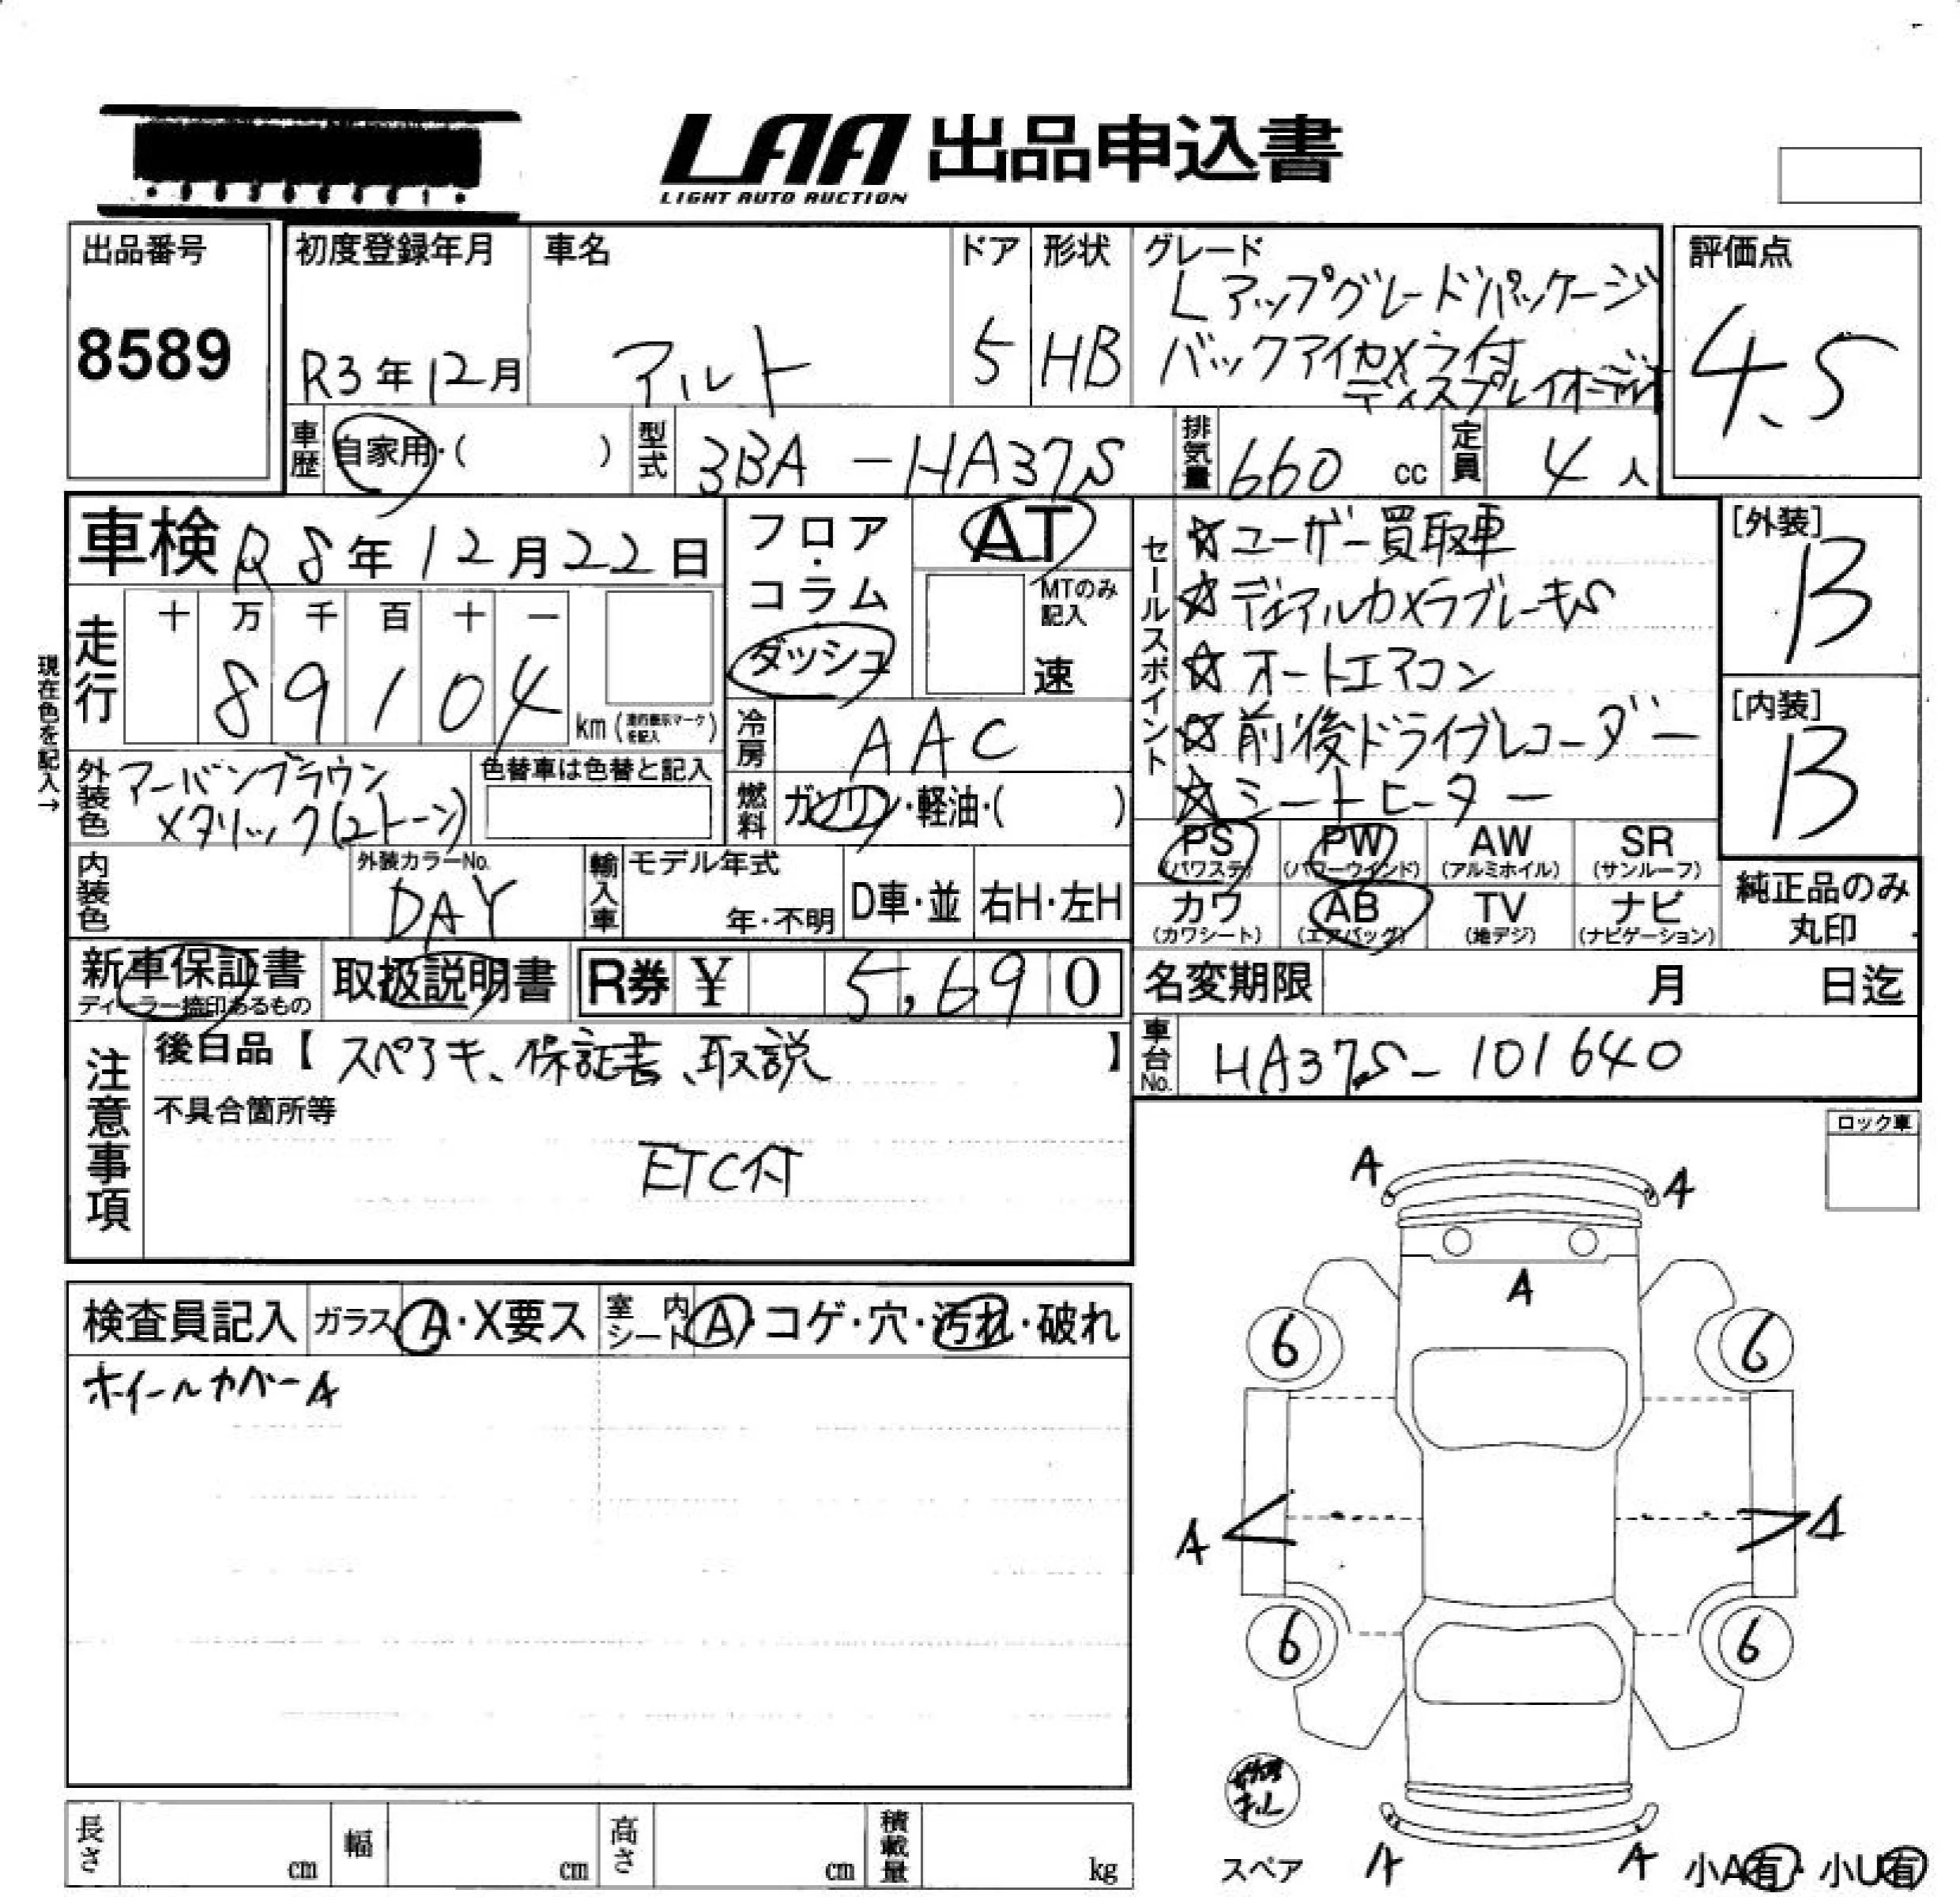 LAA 出品申込書
LIGHT AUTO AUCTION
出品番号
8589
初度登録年月
R3年12月
車名
アルト
ドア
5
形状
HB
グレード
Lアップグレードパッケージ
バックアイカメラ付
ディスプレイオーディオ
評価点
4.5
車歴
自家用・( )
型式
3BA-HA37S
排気量
660 cc
定員
4人
車検 R8年12月22日
現在色を記入→
走行
十 万 千 百 十 一
8 9 1 0 4
km(
を記入 )
フロア・コラム
ダッシュ
AT
MTのみ
記入
速
冷房
AAC
外装色
アーバンブラウン
メタリック(2トーン)
色替車は色替と記入
燃料
ガソリン・軽油・( )
内装色
外装カラーNo.
DAY
輸入車
モデル年式
年・不明
D車・並
右H・左H
新車保証書
ディーラー捺印あるもの
取扱説明書
R券 ¥ 5,690
セールスポイント
☆ユーザー買取車
☆デュアルカメラブレーキS
☆オートエアコン
☆前後ドライブレコーダー
☆シートヒーター
[外装]
B
[内装]
B
PS
(パワステ)
PW
(パワーウインド)
AW
(アルミホイル)
SR
(サンルーフ)
カワ
(カワシート)
AB
(エアバッグ)
TV
(地デジ)
ナビ
(ナビゲーション)
純正品のみ
丸印
名変期限 月 日迄
車台No.
HA37S-101640
注意事項
後日品【スペアキ、保証書、取説】
不具合箇所等
ETC付
ロック車
検査員記入
ガラス A・X要ス
室内シート A・コゲ・穴・汚れ・破れ
ホイールカバーA
A A
A
6 6
A A
6 6
スペア
A A
小A有・小U有
長さ cm
幅 cm
高さ cm
積載量 kg